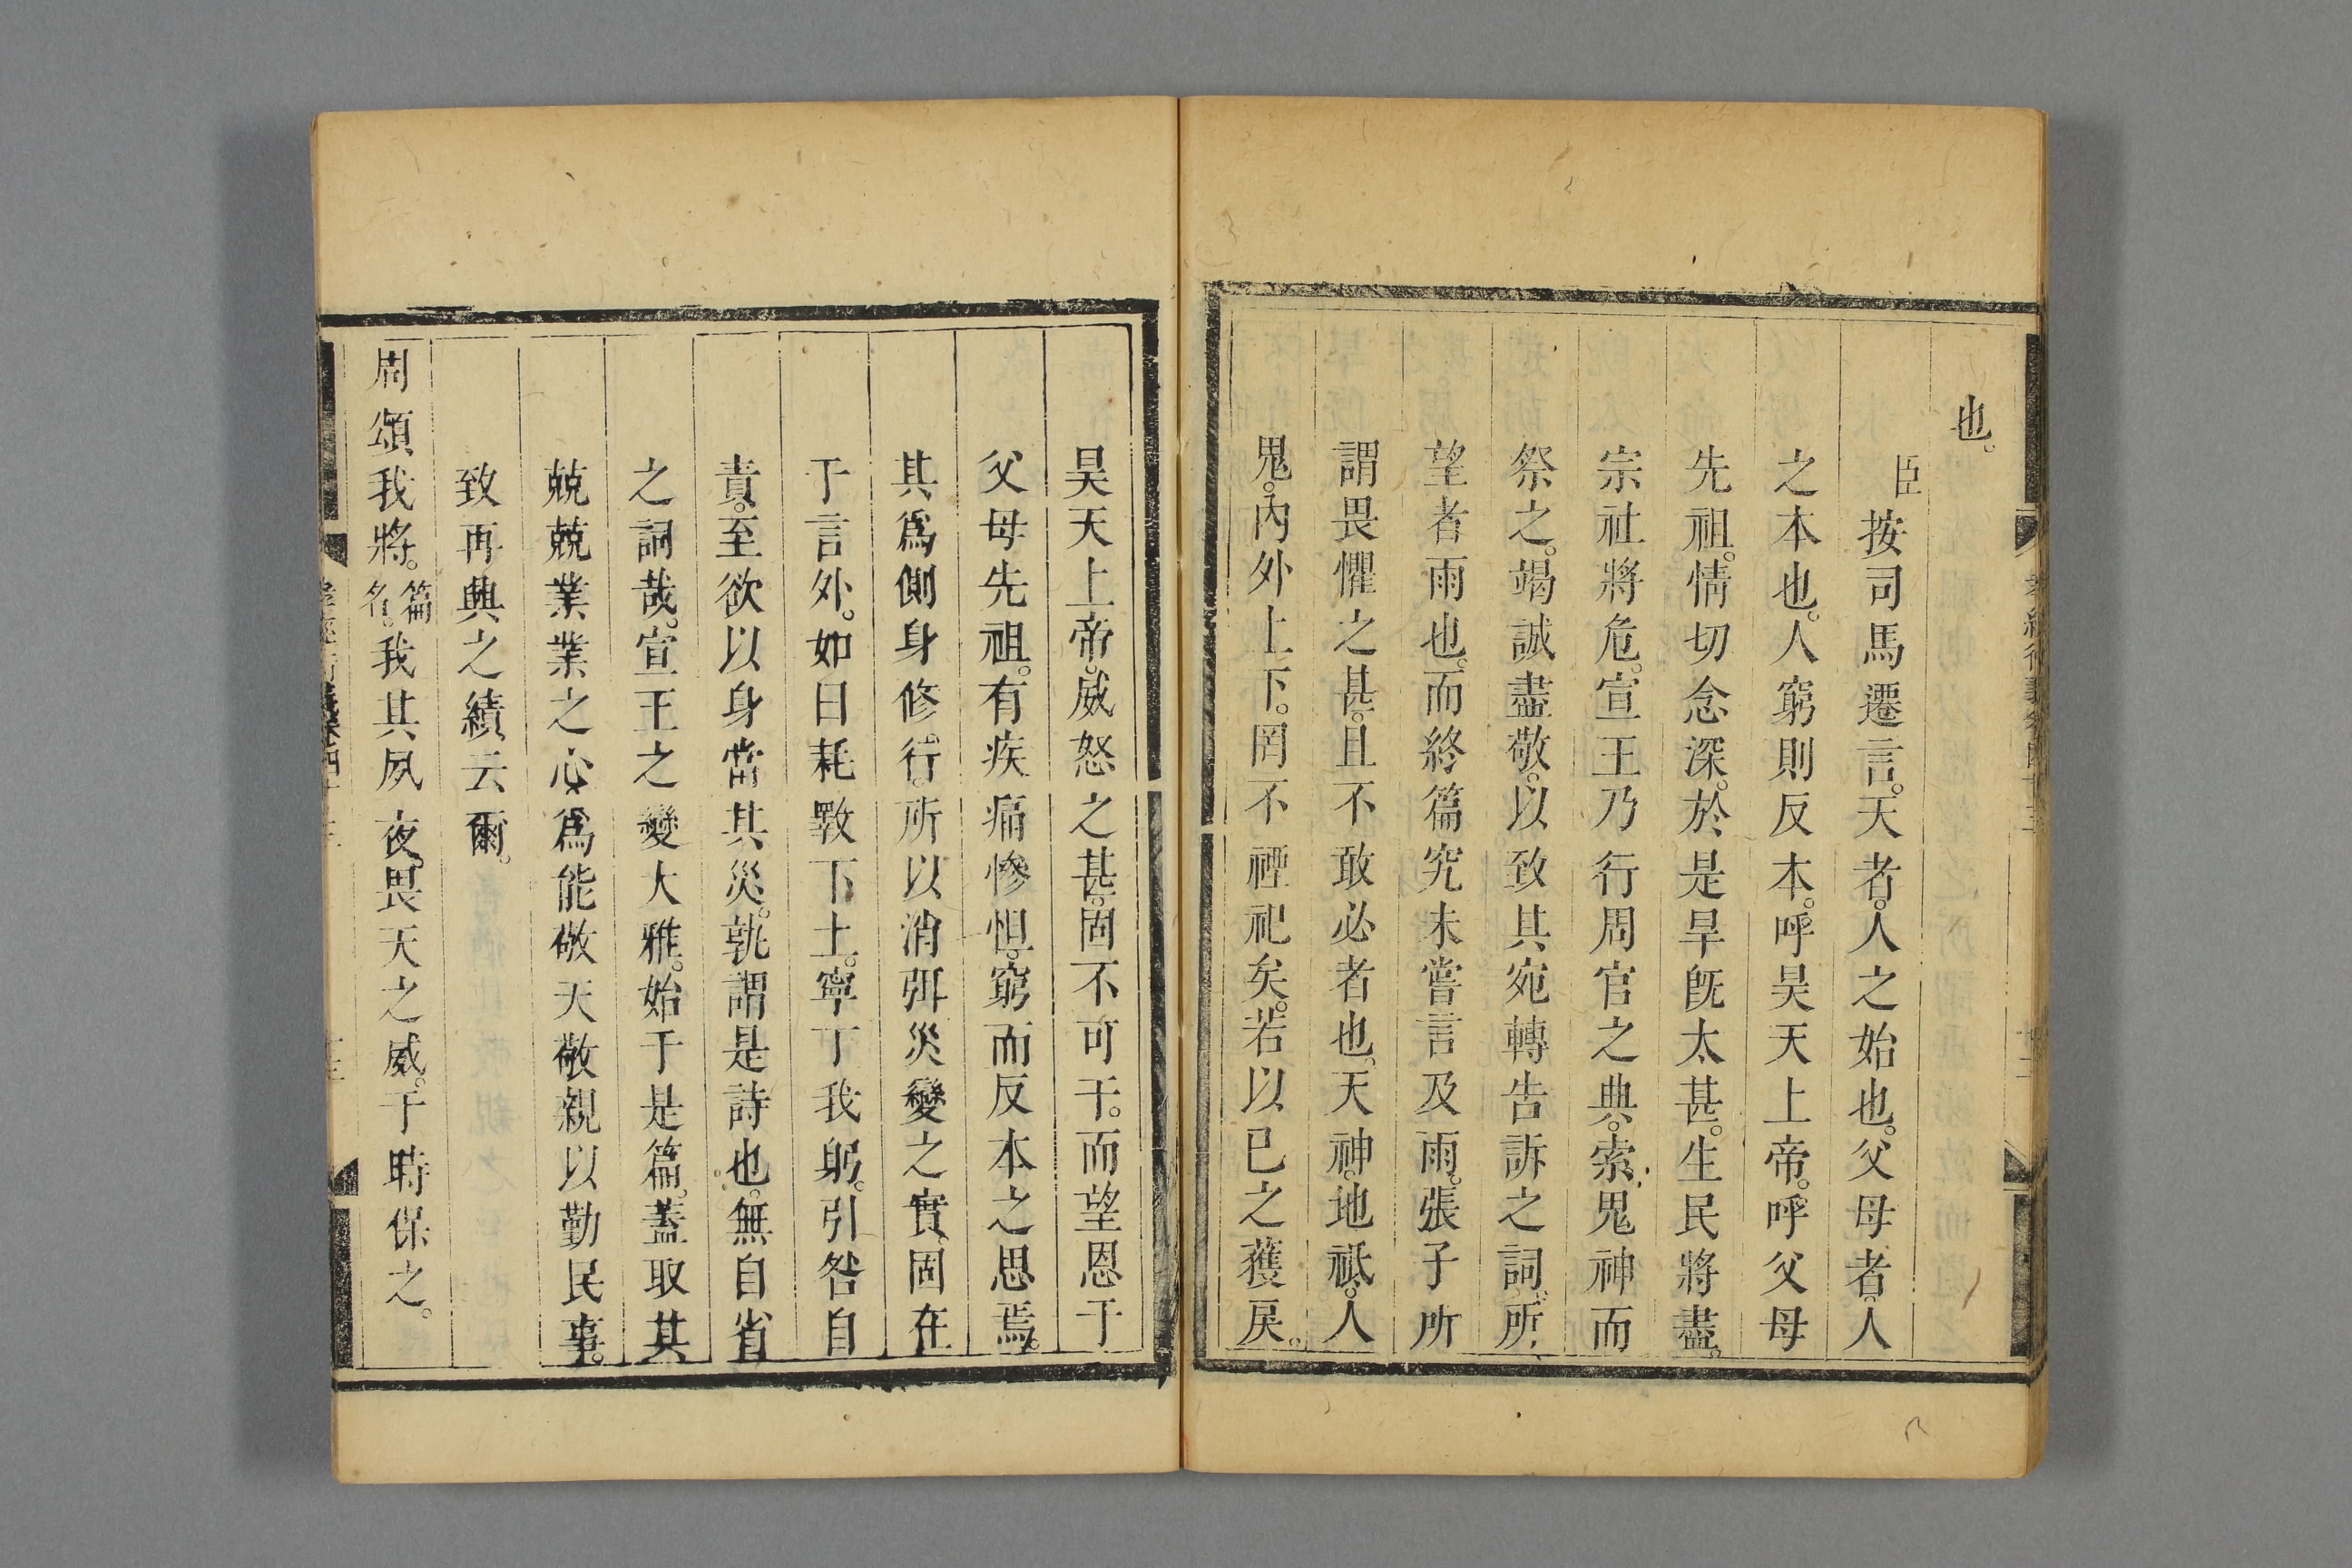 也。
臣按司馬遷言。天者。人之始也。父母者。人
之本也。人窮則反本。呼昊天上帝。呼父母
先祖。情切念深。於是旱旣太甚。生民將盡。
宗社將危。宣王乃行周官之典。索鬼神而
祭之。竭誠盡敬。以致其宛轉告訴之詞。所
望者雨也。而終篇究未嘗言及雨。張子所
謂畏懼之甚。且不敢必者也。天神。地祗。人
鬼。內外上下。罔不禋祀矣。若以已之獲戾。
昊天上帝。威怒之甚。固不可干。而望恩于
父母先祖。有疾痛慘怛。窮而反本之思焉。
其爲側身修行。所以消弭災變之實。固在
于言外。如曰耗斁下土。寧丁我躬。引咎自
責。至欲以身當其災。孰謂是詩也。無自省
之詞哉。宣王之變大雅。始于是篇。蓋取其
兢兢業業之心。爲能敬天敬親以勤民事。
致再興之績云爾。
周頌我將。篇名。我其夙夜。畏天之威。于時保之。